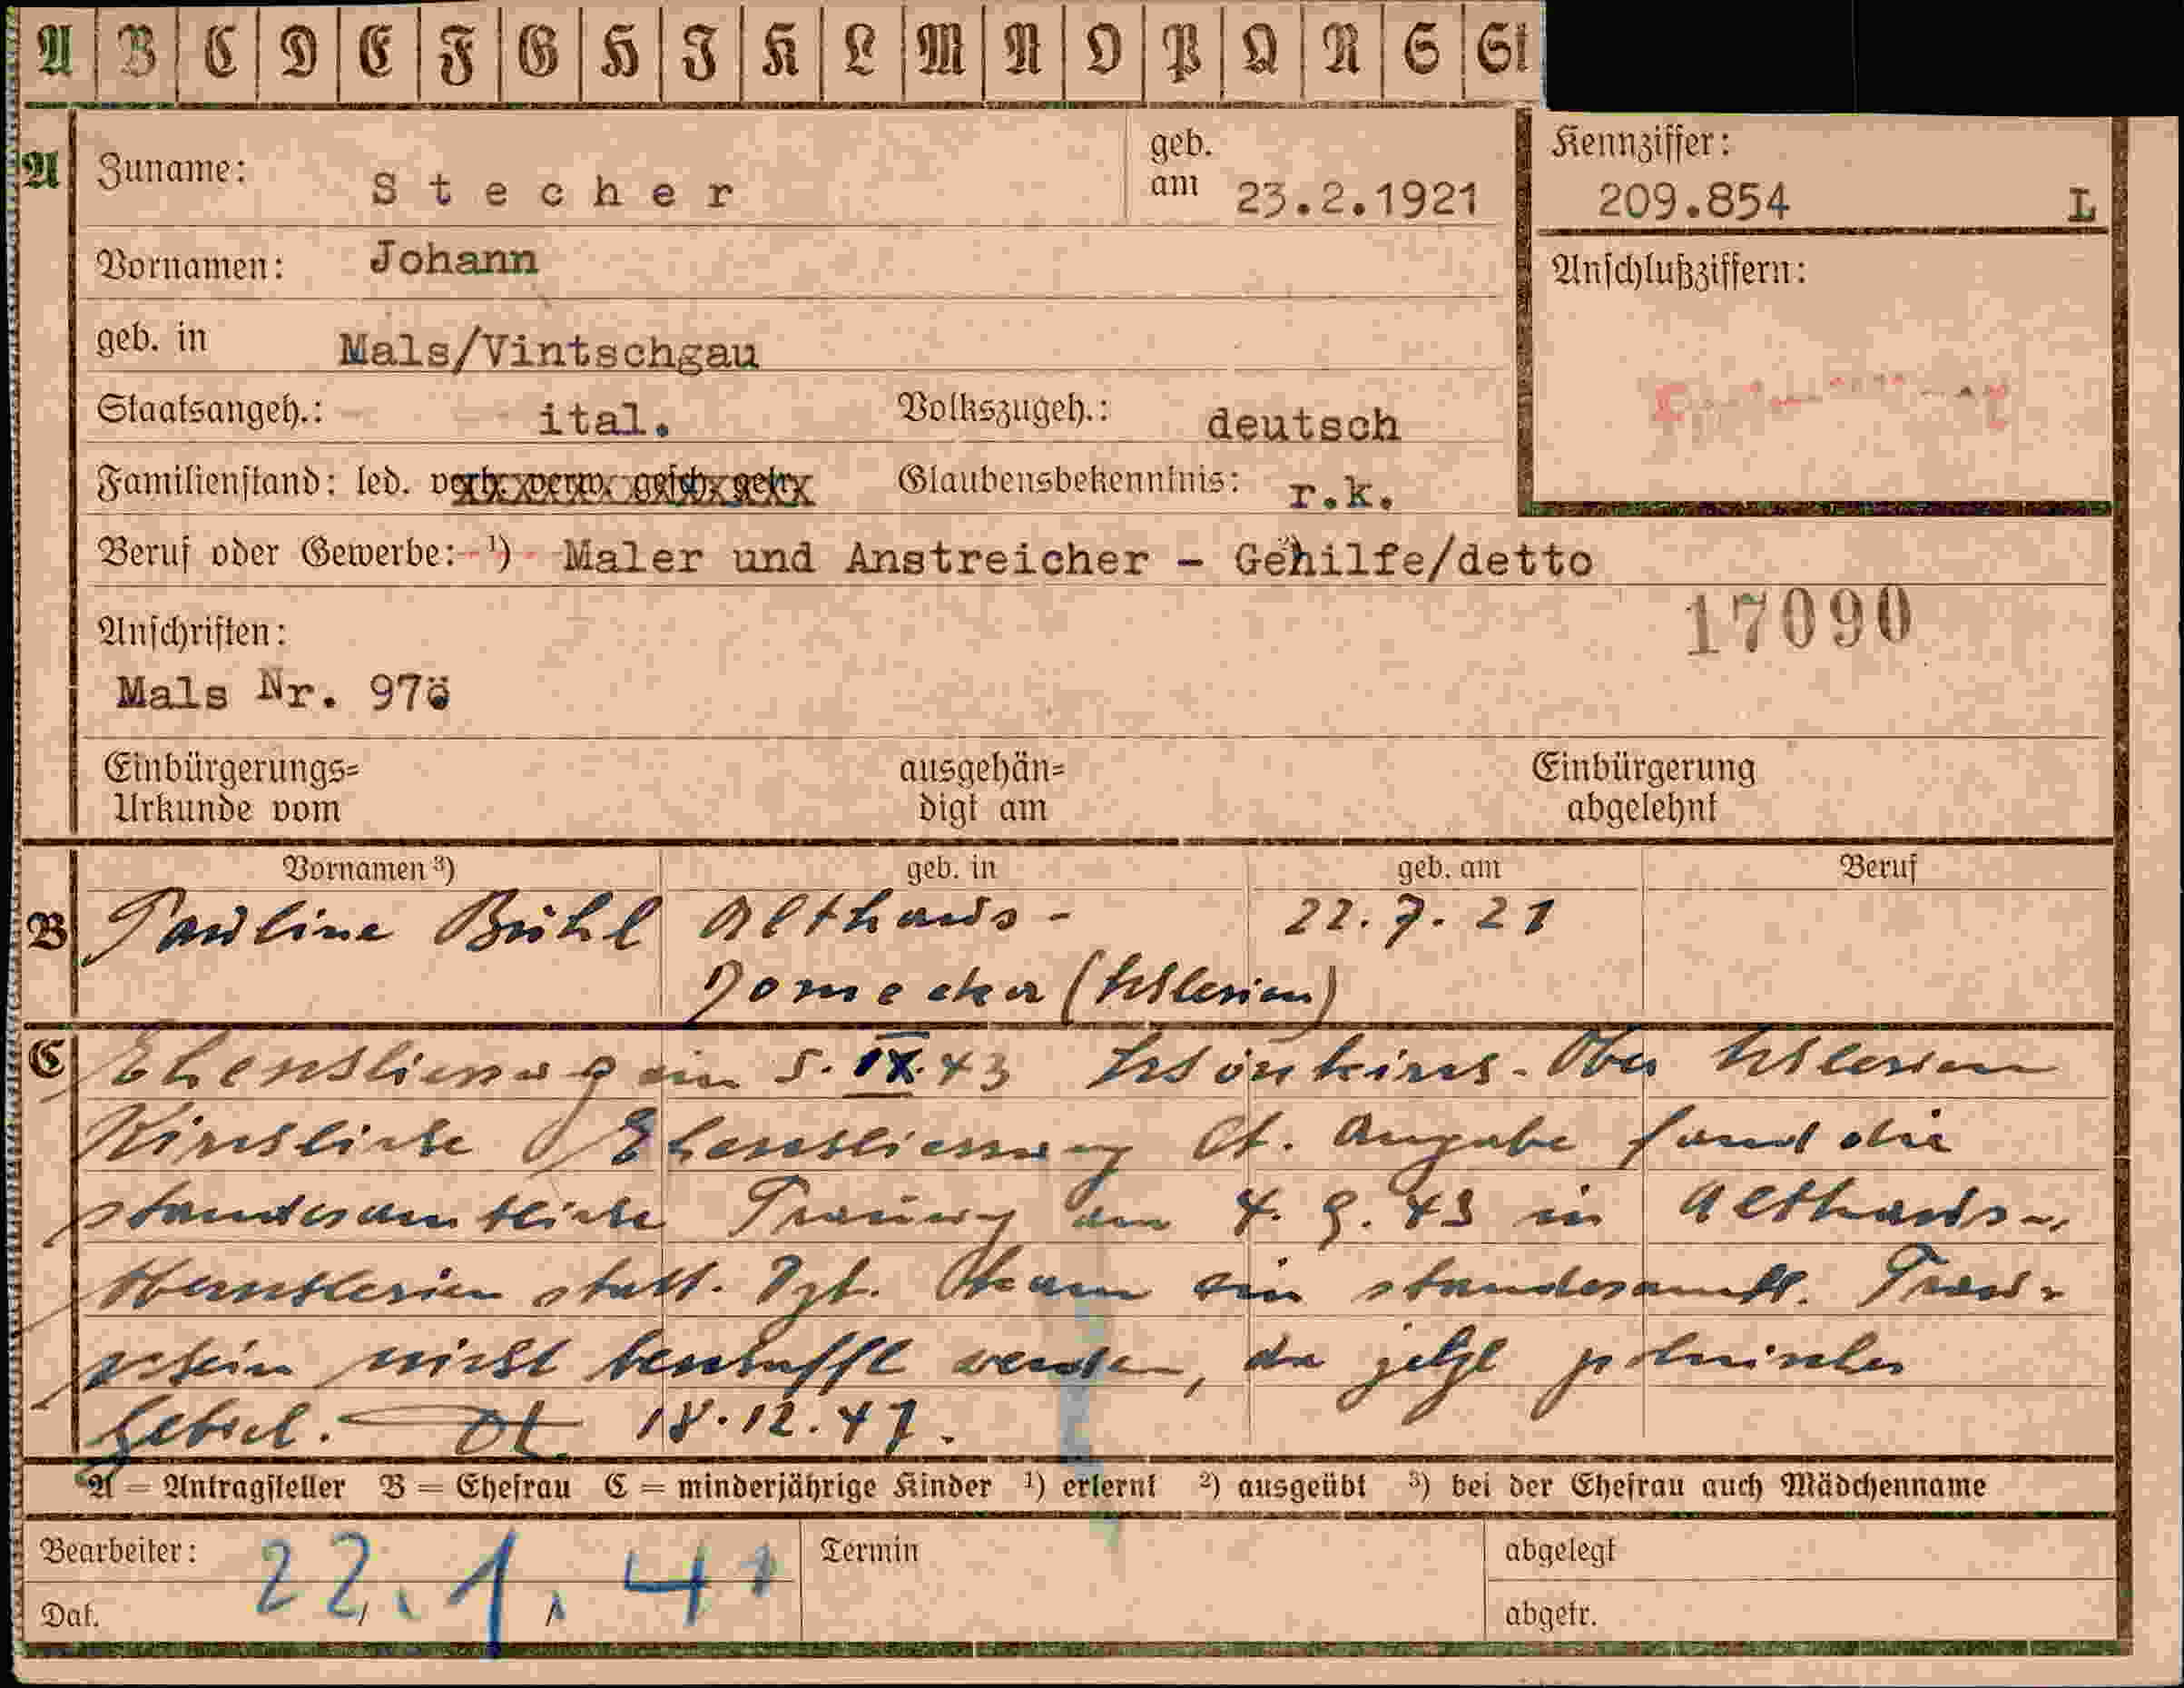 A B C D E F G H I K L M N O P Q R S St
A Zuname: Stecher geb. am 23.2.1921 Kennziffer: 209.854 L
Vornamen: Johann Anschlußziffern:
geb. in Mals/Vintschgau
Staatsangeh.: ital. Volkszugeh.: deutsch
Familienstand: led. verh. verw. gesch. getr. Glaubensbekenntnis: r.k.
Beruf oder Gewerbe: ¹) Maler und Anstreicher - Gehilfe/detto
17090
Anschriften:
Mals Nr. 97
Einbürgerungs= ausgehän= Einbürgerung
Urkunde vom digt am abgelehnt
Vornamen ³) geb. in geb. am Beruf
B Pauline Bühl Althaus- 22.7.21
(Schlesien)
C Eheschliessung am 5.IX.43 Schönkirch-Ober Schlesien
Kirchliche Eheschliessung lt. Angabe fand die
standesamtliche Trauung am 4.9.43 in Althaus-
Oberschlesien statt. Dzt. kann ein standesamtl. Trau-
schein nicht beschafft werden, da jetzt polnisches
Gebiet. 18.12.47.
A = Antragsteller B = Ehefrau C = minderjährige Kinder ¹) erlernt ²) ausgeübt ³) bei der Ehefrau auch Mädchenname
Bearbeiter: Termin abgelegt
22.1.41
Dat. abgetr.